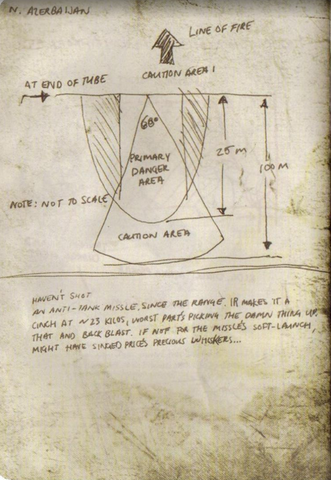 N. AZERBAIJAN
LINE OF FIRE
CAUTION AREA 1
AT END OF TUBE
68°
PRIMARY
DANGER
AREA
25 M
100 M
NOTE: NOT TO SCALE
CAUTION AREA
HAVEN'T SHOT
AN ANTI-TANK MISSLE. SINCE THE RANGE. IR MAKES IT A
CINCH AT ~23 KILOS, WORST PART'S PICKING THE DAMN THING UP.
THAT AND BACK BLAST. IF NOT FOR THE MISSLE'S SOFT-LAUNCH,
MIGHT HAVE SINGED PRICE'S PRECIOUS WHISKERS...